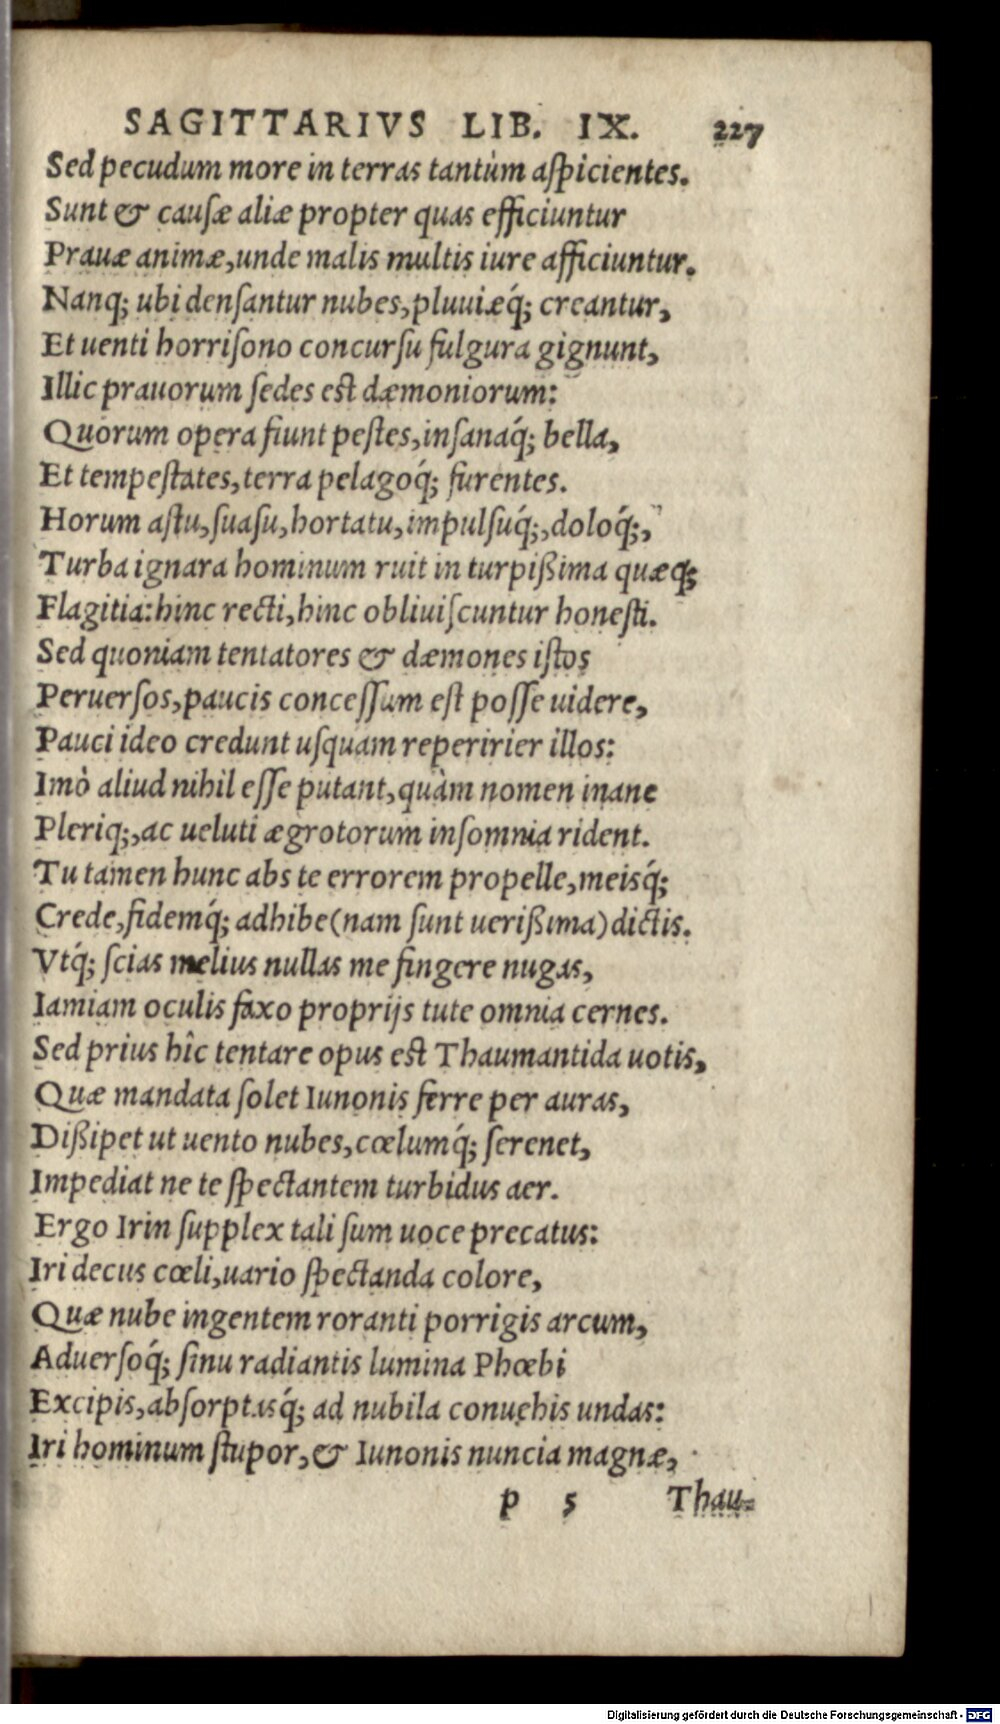 SAGITTARIVS LIB. IX. 227
Sed pecudum more in terras tantùm aſpicientes.
Sunt & cauſæ aliæ propter quas efficiuntur
Prauæ animæ, unde malis multis iure afficiuntur.
Nanq; ubi denſantur nubes, pluuiæq́; creantur,
Et uenti horriſono concurſu fulgura gignunt,
Illic prauorum ſedes eſt dæmoniorum:
Quorum opera fiunt peſtes, inſanaq́; bella,
Et tempeſtates, terra pelagoq́; furentes.
Horum aſtu, ſuaſu, hortatu, impulſuq́;, doloq́;,
Turba ignara hominum ruit in turpißima quæq;
Flagitia: hinc recti, hinc obliuiſcuntur honeſti.
Sed quoniam tentatores & dæmones iſtos
Peruerſos, paucis conceſſum eſt poſſe uidere,
Pauci ideo credunt uſquam reperirier illos:
Imò aliud nihil eſſe putant, quàm nomen inane
Pleriq;, ac ueluti ægrotorum inſomnia rident.
Tu tamen hunc abs te errorem propelle, meisq́;
Crede, fidemq́; adhibe (nam ſunt uerißima) dictis.
Vtq́; ſcias melius nullas me fingere nugas,
Iamiam oculis faxo proprijs tute omnia cernes.
Sed prius hîc tentare opus eſt Thaumantida uotis,
Quæ mandata ſolet Iunonis ferre per auras,
Dißipet ut uento nubes, cœlumq́; ſerenet,
Impediat ne te ſpectantem turbidus aer.
Ergo Irin ſupplex tali ſum uoce precatus:
Iri decus cœli, uario ſpectanda colore,
Quæ nube ingentem roranti porrigis arcum,
Aduerſoq́; ſinu radiantis lumina Phœbi
Excipis, abſorptasq́; ad nubila conuehis undas:
Iri hominum ſtupor, & Iunonis nuncia magnæ,
p 5 Thau-
Digitalisierung gefördert durch die Deutsche Forschungsgemeinschaft - DFG